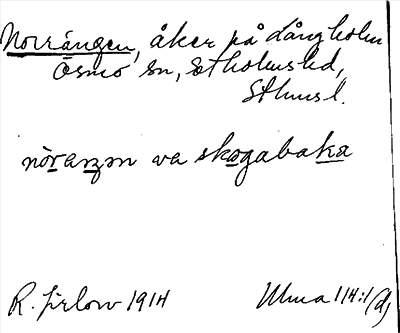 Norrängen, åker på Långholm
Ösmo sn, Sotholms hd,
Sthms l.
nòraŋən va skogabaka
R. Jirlow 1914 Ulma 114:1 (d)